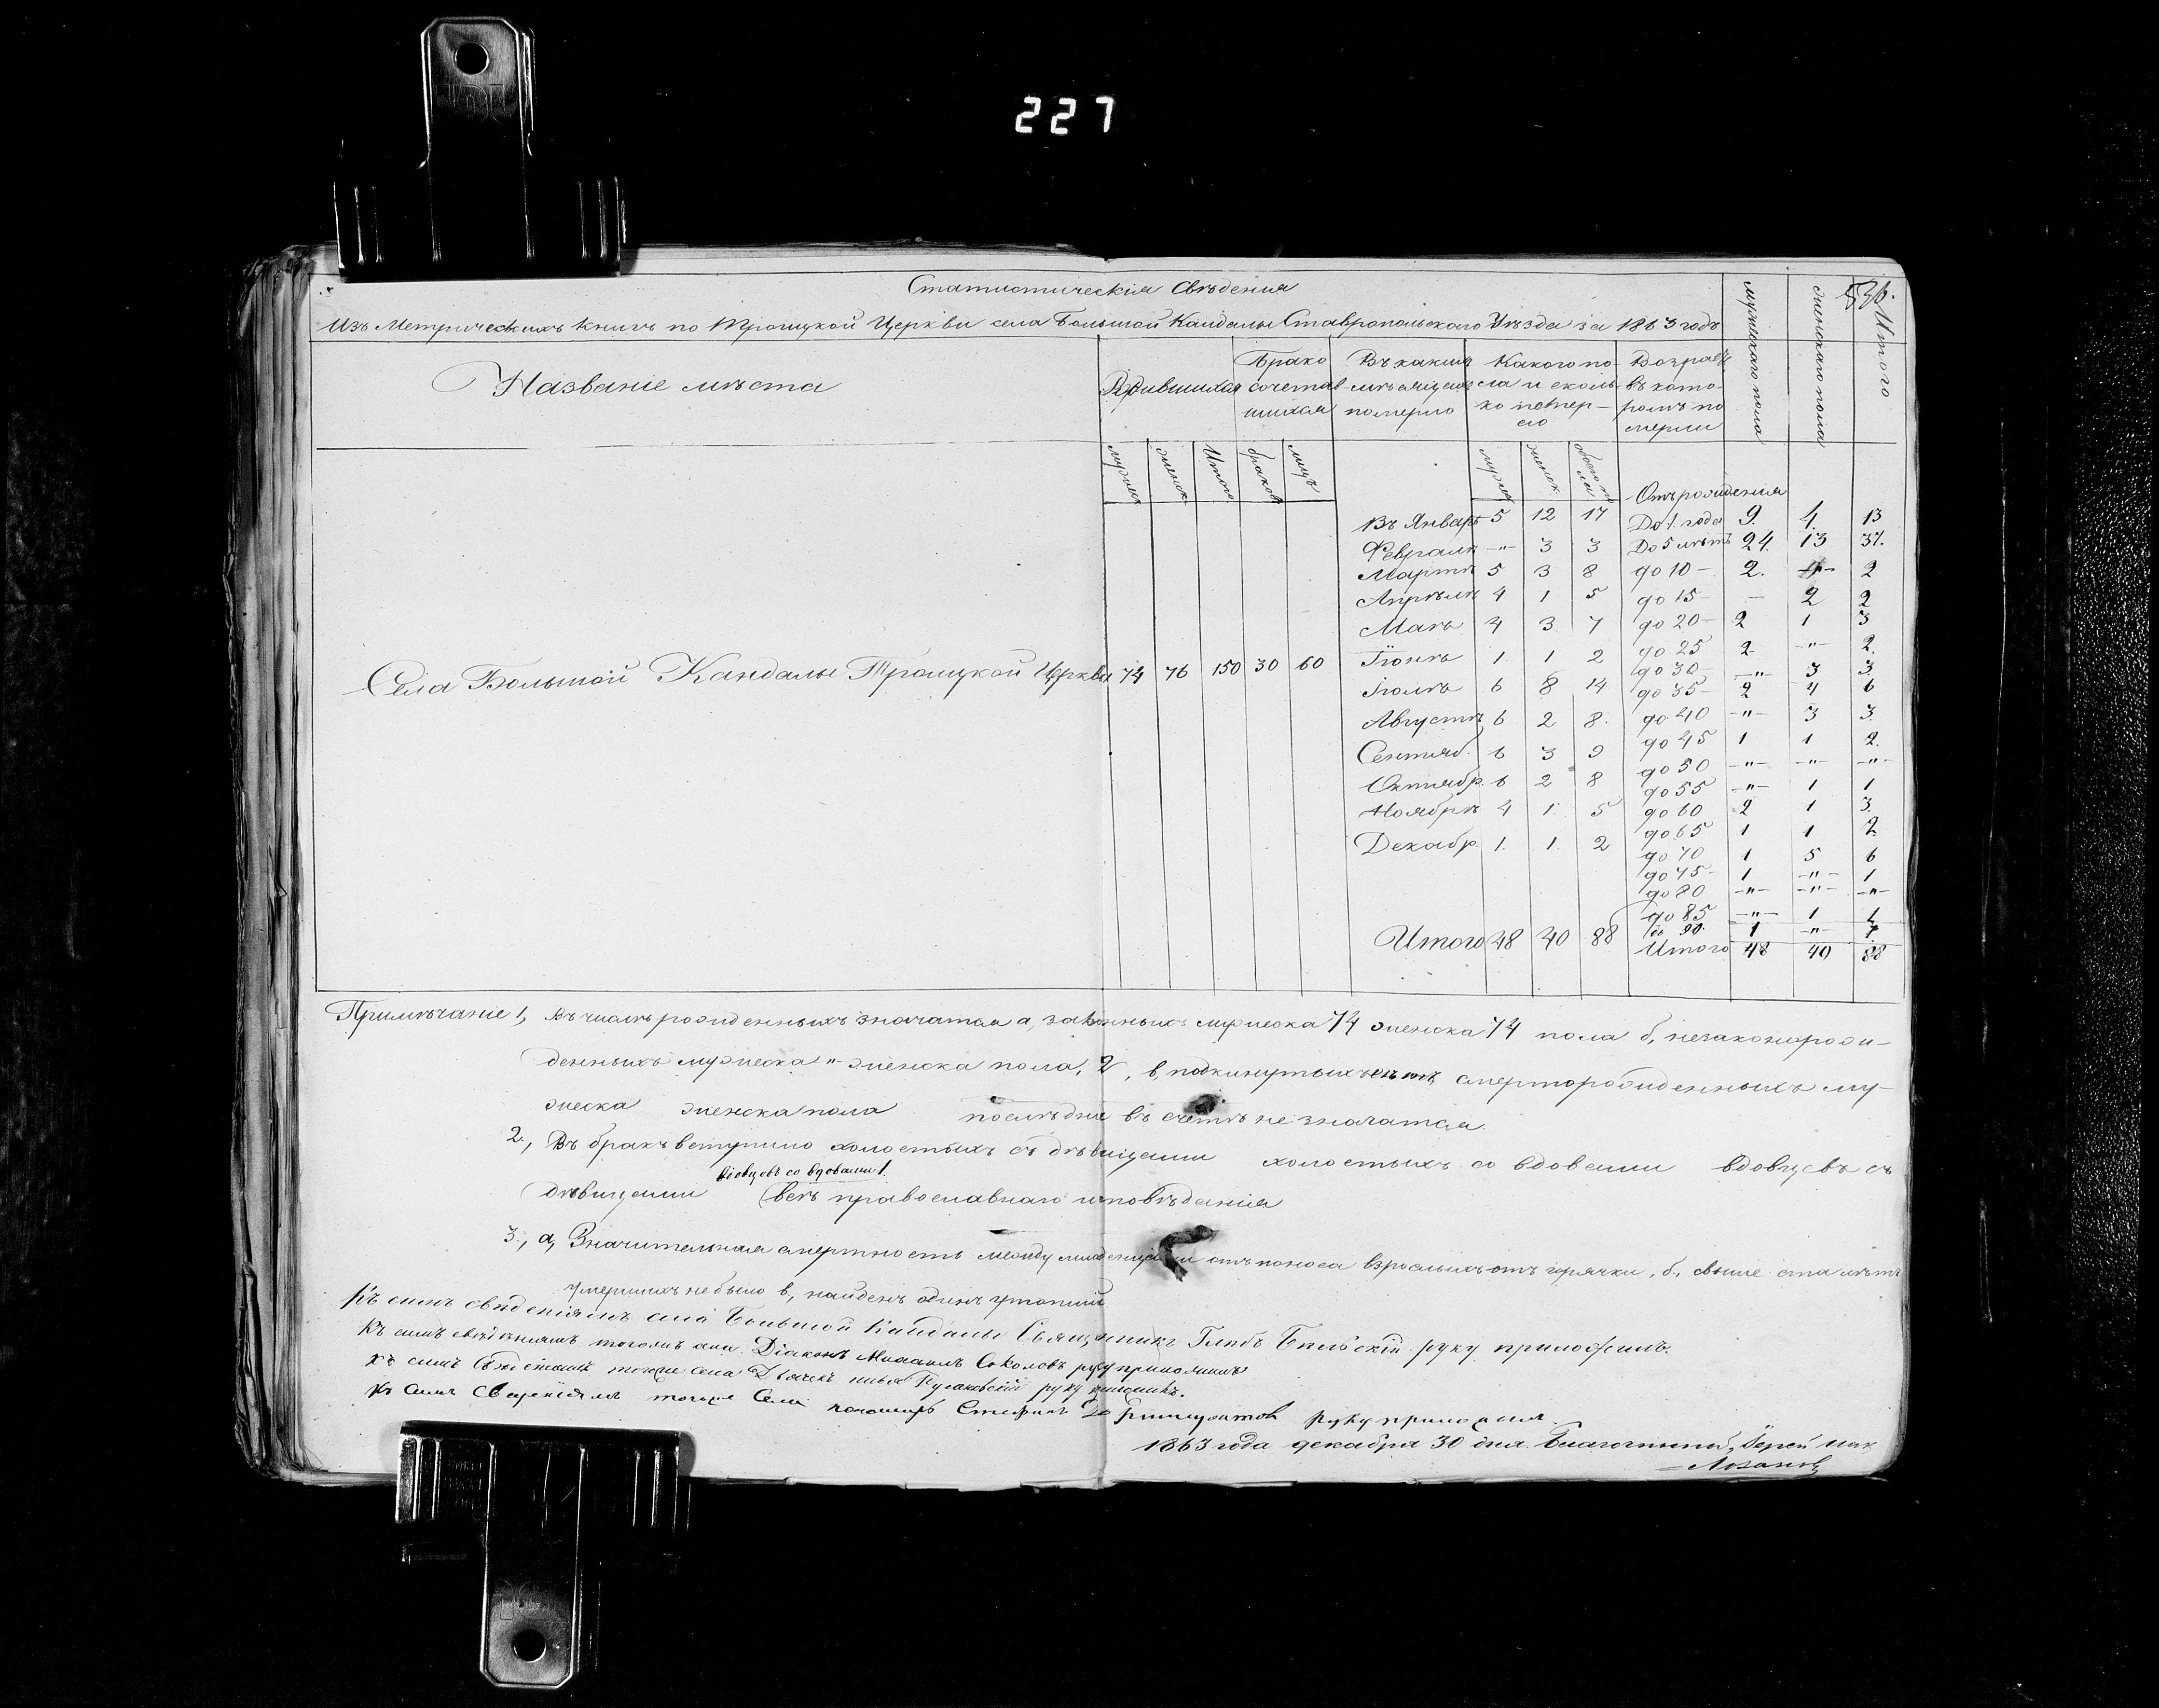 227
536.
Статистическія Свѣденія
Изъ Метрическихъ книгъ по Троицкой Церкви села Большой Кандалы Ставропольскаго Уѣзда за 1863 годъ
мужескаго пола
женскаго пола
Итого
Названіе мѣста
Родившихся
Брако
сочетав-
шихся
Въ какихъ
мѣсяцехъ
померло
Какого по-
ла и сколь-
ко помер-
ло
Возрастъ
въ кото-
ромъ по
мерли
мужеск
женск
Итого
браков
лицъ
мужеск
женск
обоего пола
Отъ рожденія
Въ Январѣ 5 12 17 До 1. года 9. 4. 13
Февралѣ -"- 3 3 До 5 лѣтъ 24. 13 37.
Мартѣ 5 3 8 до 10 - 2. -"- 2
Апрѣлѣ 4 1 5 до 15 - - 2 2
Маѣ 4 3 7 до 20 - 2 1 3
до 25 2 -"- 2.
Іюнѣ 1. 1 2 до 30 - -"- 3 3.
Села Большой Кандалы Троицкой Церкви 74 76 150 30 60
Іюлѣ 6 8 14 до 35 - 2 4 6
Августѣ 6 2 8. до 40 -"- 3 3.
Сентяб. 6 3 9 до 45 1 1 2.
до 50 -"- -"- -"-
Октябр. 6 2 8 до 55 -"- 1 1
Ноябрѣ 4 1. 5 до 60 2 1 3.
до 65 1 1 2
Декабр. 1. 1. 2 до 70 1 5 6
до 75 - 1 -"- 1
до 80 -"- -"- -"-
до 85 -"- 1 1
до 90. 1 -"- 1
Итого 48 40 88 Итого 48 40 88
Примѣчаніе 1, Въ числѣ рожденныхъ значатся а, законныхъ мужеска 74 женска 74 пола б, незаконорож-
денныхъ мужеска " женска пола, 2, в, подкинутыхъ смерторожденныхъ му-
жеска женска пола послѣдніе въ счетъ не значатся.
2., Въ бракъ вступило холостыхъ съ дѣвицами холостыхъ со вдовами вдовцевъ съ
вдовцевъ со вдовами 1.
дѣвицами (всѣ православнаго исповѣданія
3., а, Значительная смертность между младенцами отъ поноса взрослыхъ отъ горячки, б, свыше ста лѣтъ
умершихъ не было в, найденъ одинъ утопшій
Къ симъ свѣденіямъ села Большой Кандалы Священникъ Глѣбъ Бѣльскій руку приложилъ.
Къ симъ свѣденіямъ тогожъ села Діаконъ Михаилъ Соколовъ руку приложилъ
Къ симъ свѣденіямъ тогоже села Дьячекъ руку приложилъ.
Къ симъ Сведеніямъ тогоже Села пономарь Стефанъ руку приложилъ.
1863 года декабря 30 дня. Благочинный, Іерей
Лозановъ